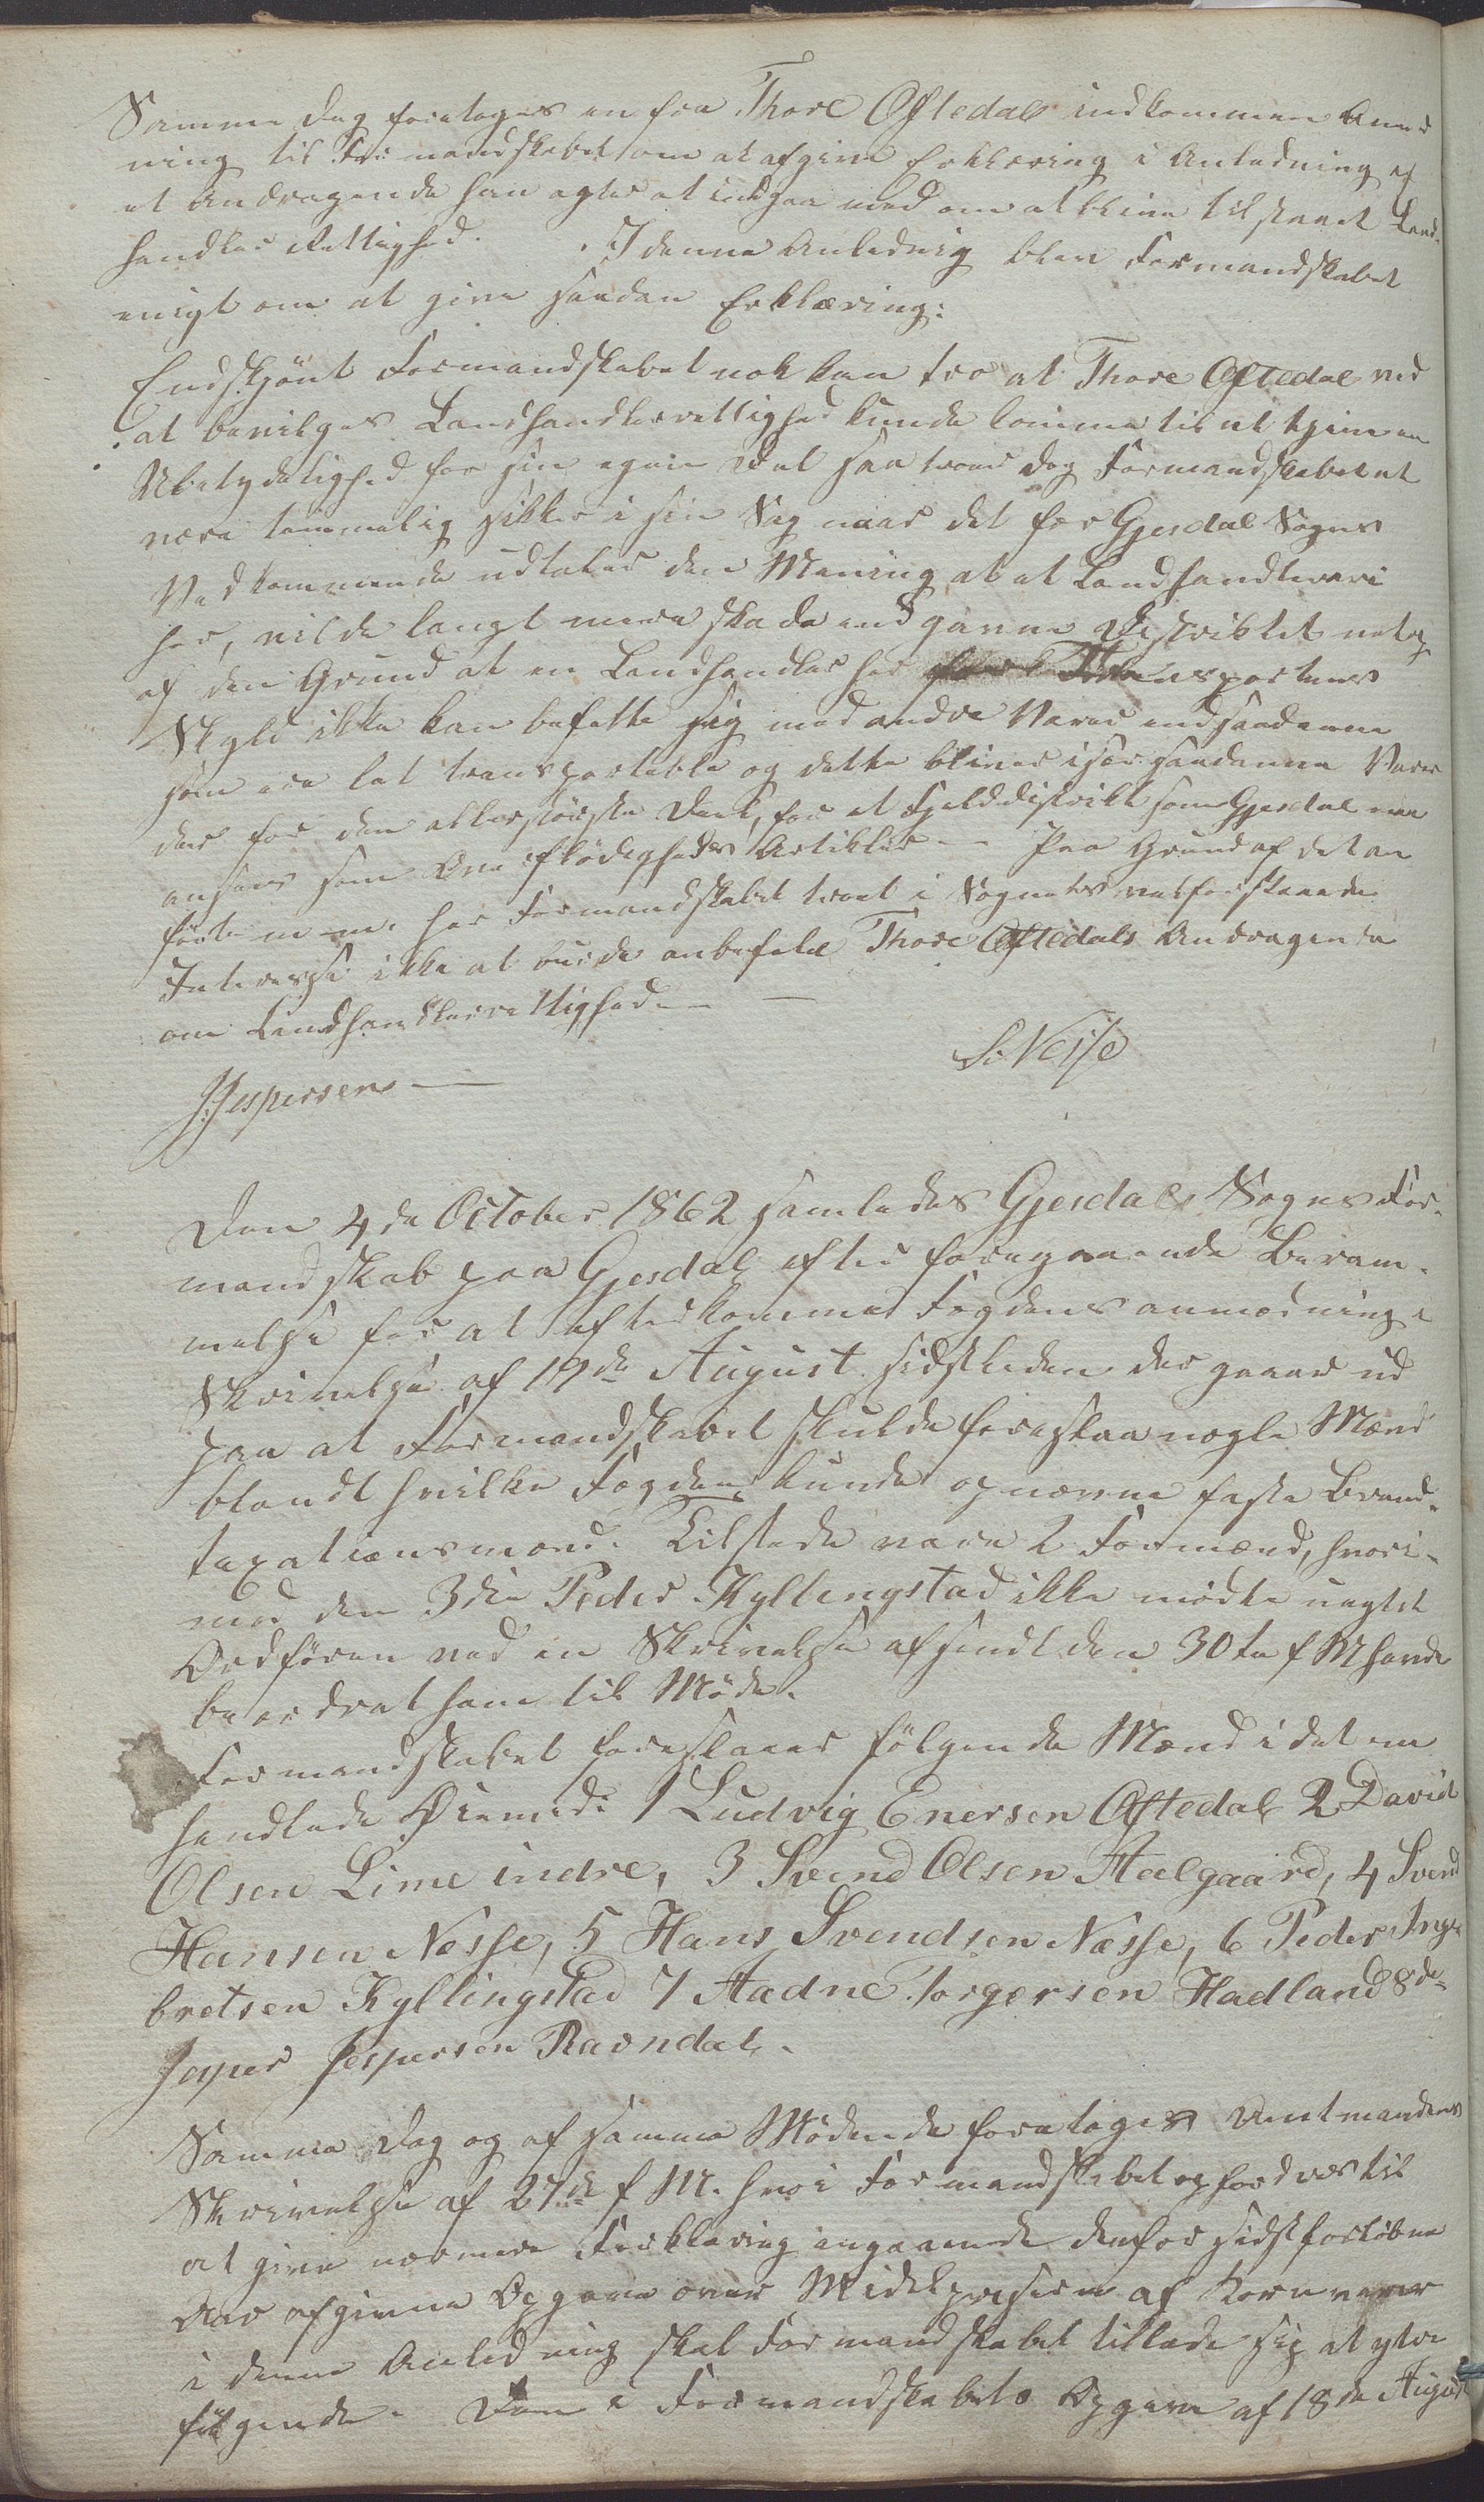 Samme Dag foretoges en fra Thore Oftedal indkommen Anmod
ning til Formandskabet om at afgive Erklæring i Anledning af
et Andragende han agter at indgaa med om at blive tilstaaet Land-
handler Rettighed. I denne Anledning blev Formandskabet
enigt om at give saadan Erklæring:
Endskjönt Formandskabet nok kan tro at Thore Oftedal ved
at bevilges Landhandlerrettighed kunde komme til at tjene en
Ubetydelighed for sin egen Del saa troer dog Formandskabet at
være temmelig sikker i sin Sag naar det for Gjesdal Sogns
Vedkommende udtaler den Mening at et Landhandleri
her, vilde langt mere skade end gavne Distriktet netop
af den Grund at en Landhandler her for Transportens
Skyld ikke kan befatte sig med andre Varer end saadanne
som ere let transportable og dette bliver især saadanne Varer
der for den allerstörste Deel, for et Fjelddistrikt som Gjesdal maa
ansees som Overflödigheds Artikler - Paa Grund af det an
förte m. m. har Formandskabet troet i Sognets velforstaaede
Interesse ikke at burde anbefale Thore Oftedals Andragende
om Landhandlerrettighed. -
S. Nesse
J. Jespersen
Den 4de October 1862 samledes Gjesdal Sogns For-
mandskab paa Gjesdal efter foregaaende Beram-
melse for at efterkomme Fogdens anmodning i
Skrivelse af 19de August sidstleden der gaaer ud
paa at Formandskabet skulde foreslaa nogle Mænd
blandt hvilke Fogden kunde opnævne faste Brand-
taxationsmænd. Tilstede vare 2 Formænd, hvori-
mod den 3die Peder Kyllingstad ikke mödte uagtet
Ordfören ved en Skrivelse afsendt den 30te f M havde
beordret ham til Möde.
Formandskabet foreslaaer fölgende Mænd i det om
handlede Öiemed: 1 Ludvig Enersen Oftedal 2 David
Olsen Lime indre, 3 Svend Olsen Aalgaard, 4 Svend
Hansen Nesse, 5 Hans Svendsen Nesse, 6 Peder Inge
bretsen Kyllingstad 7 Aadne Torgersen Hadland 8de
Jesper Jespersen Ravndal.
Samme Dag og af samme Mödende foretoges Amtmandens
Skrivelse af 27de f M. hvori Formandskabet opfordres til
at give nærmere Forklaring angaaende den for sidst forlöbne
Aar afgivne Opgave over Middelprisen af Kornvarer
i denne Anledning skal Formandskabet tillade sig at ytre
fölgende. Den i Formandskabets Opgave af 18de August